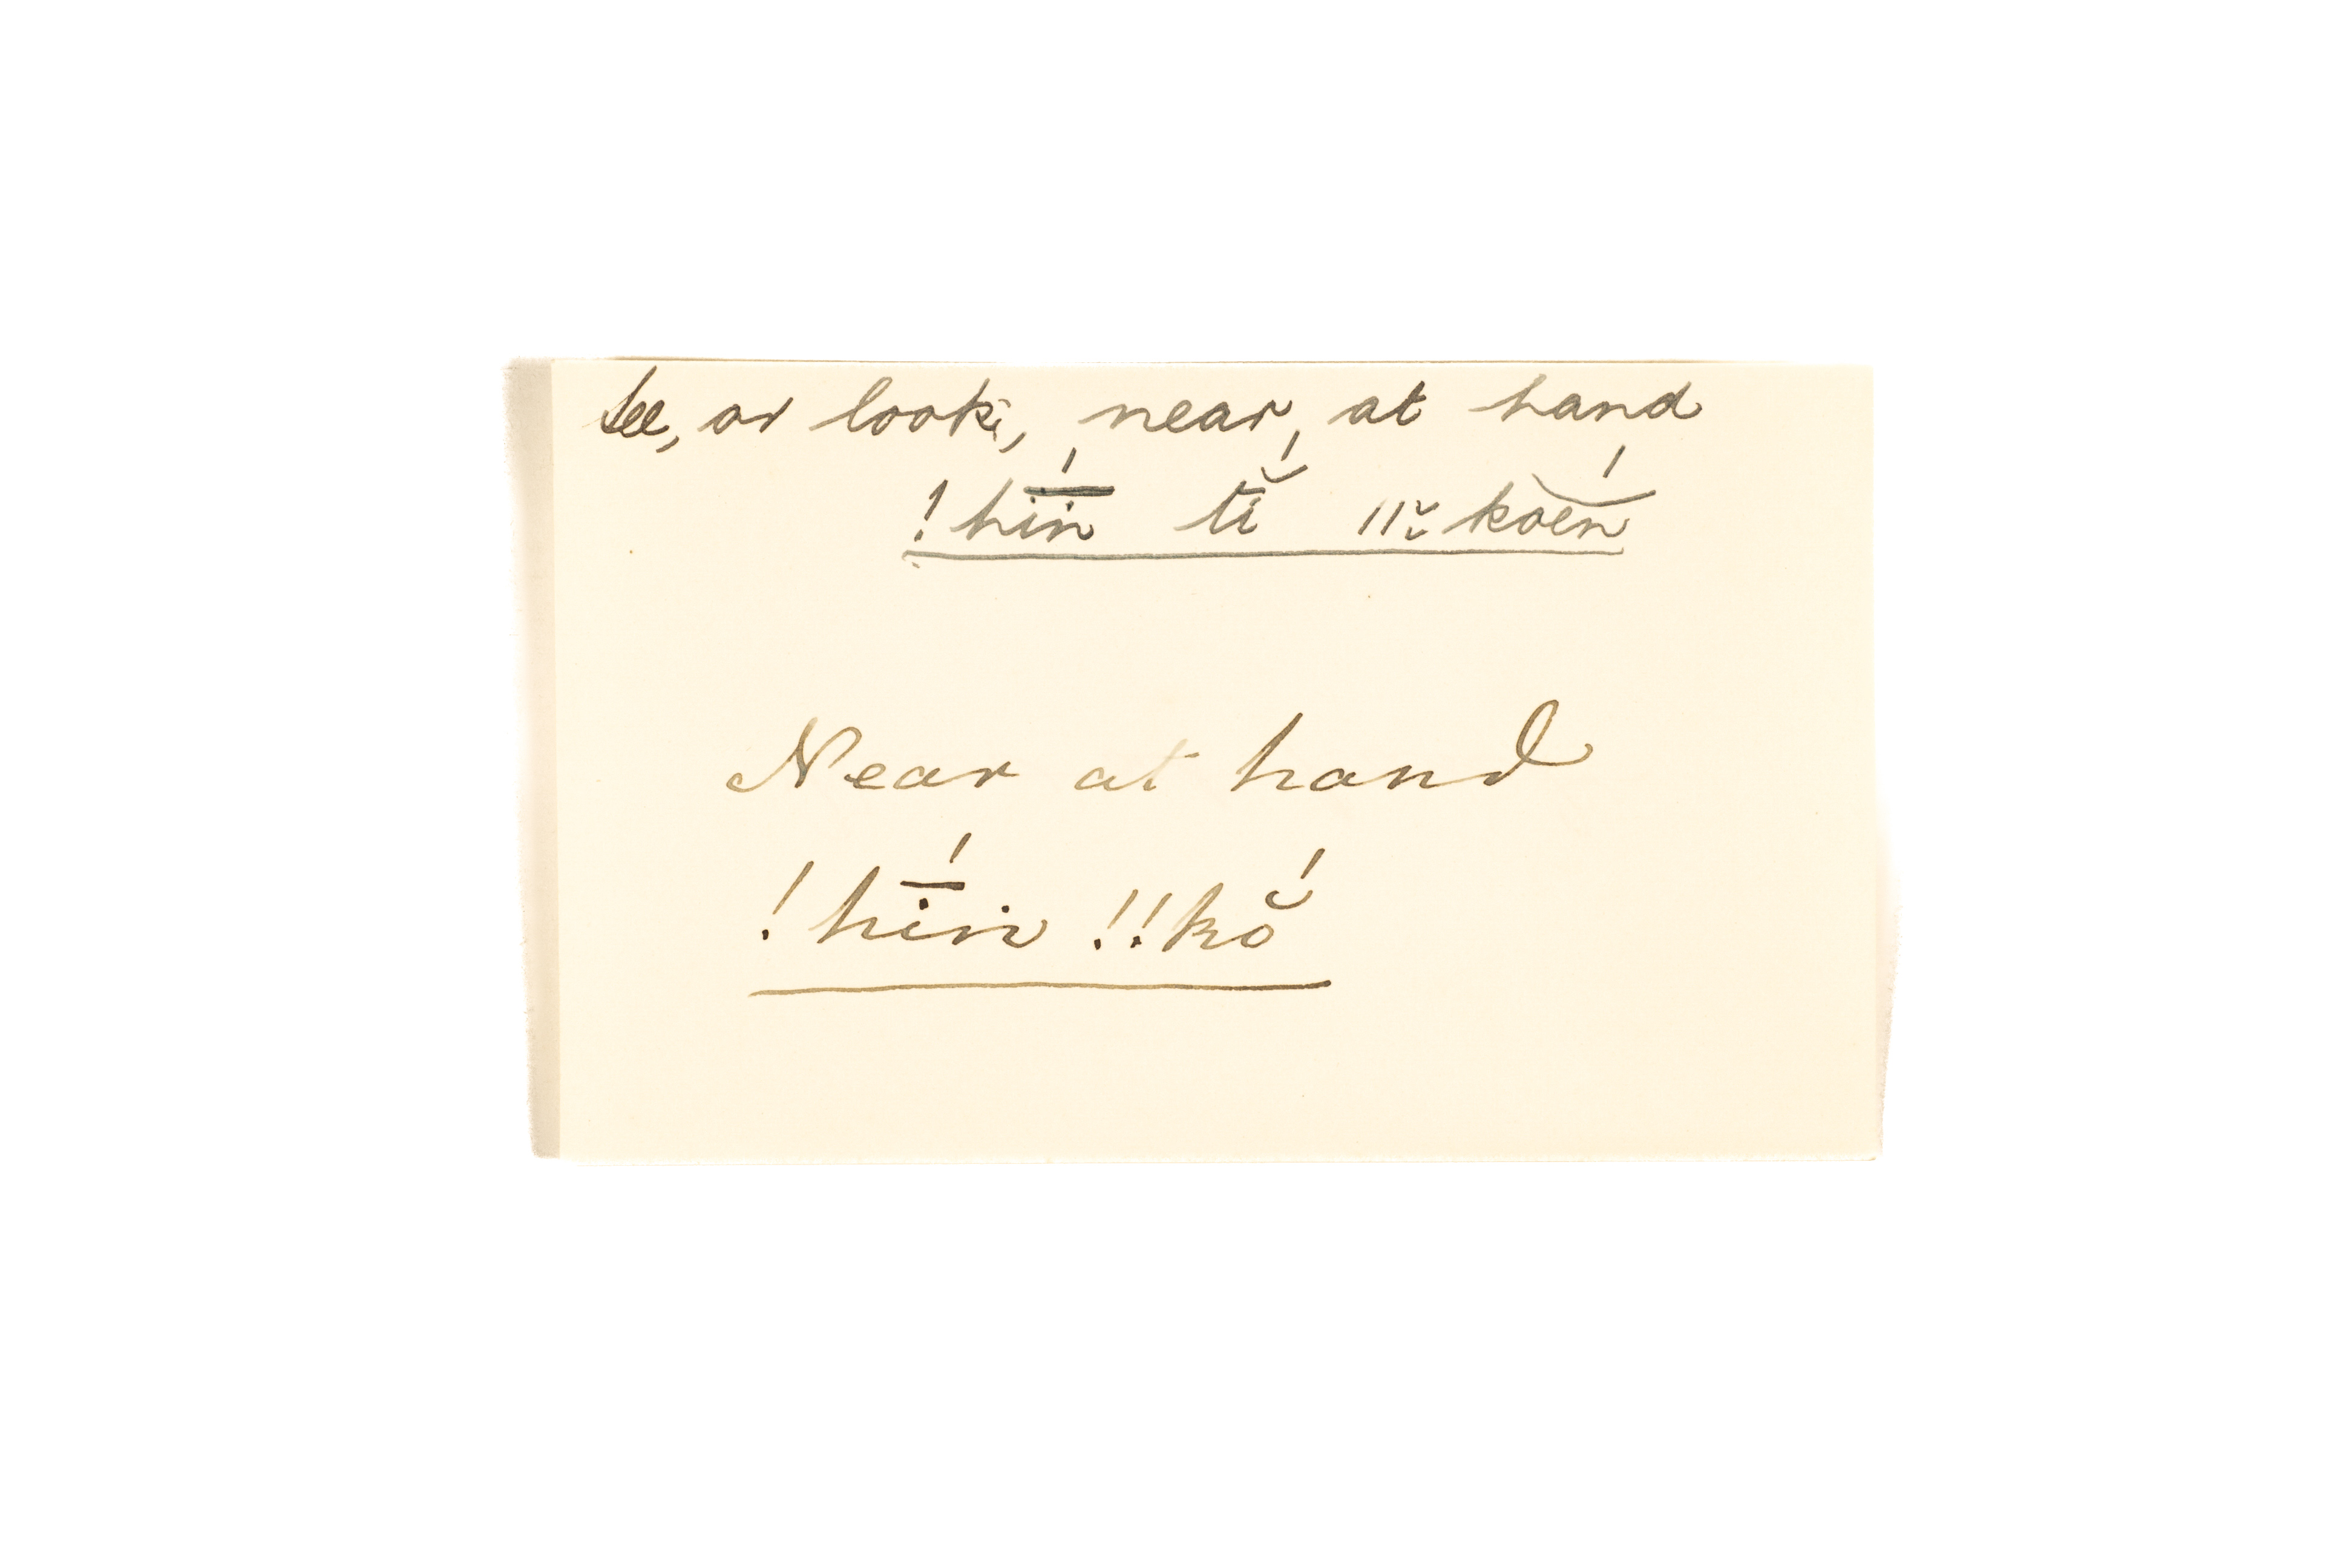 See, or look, near, at hand
!hī́n tĭ́ ǁ̆koĕ́n
Near at hand
!hī́n !!kŏ́